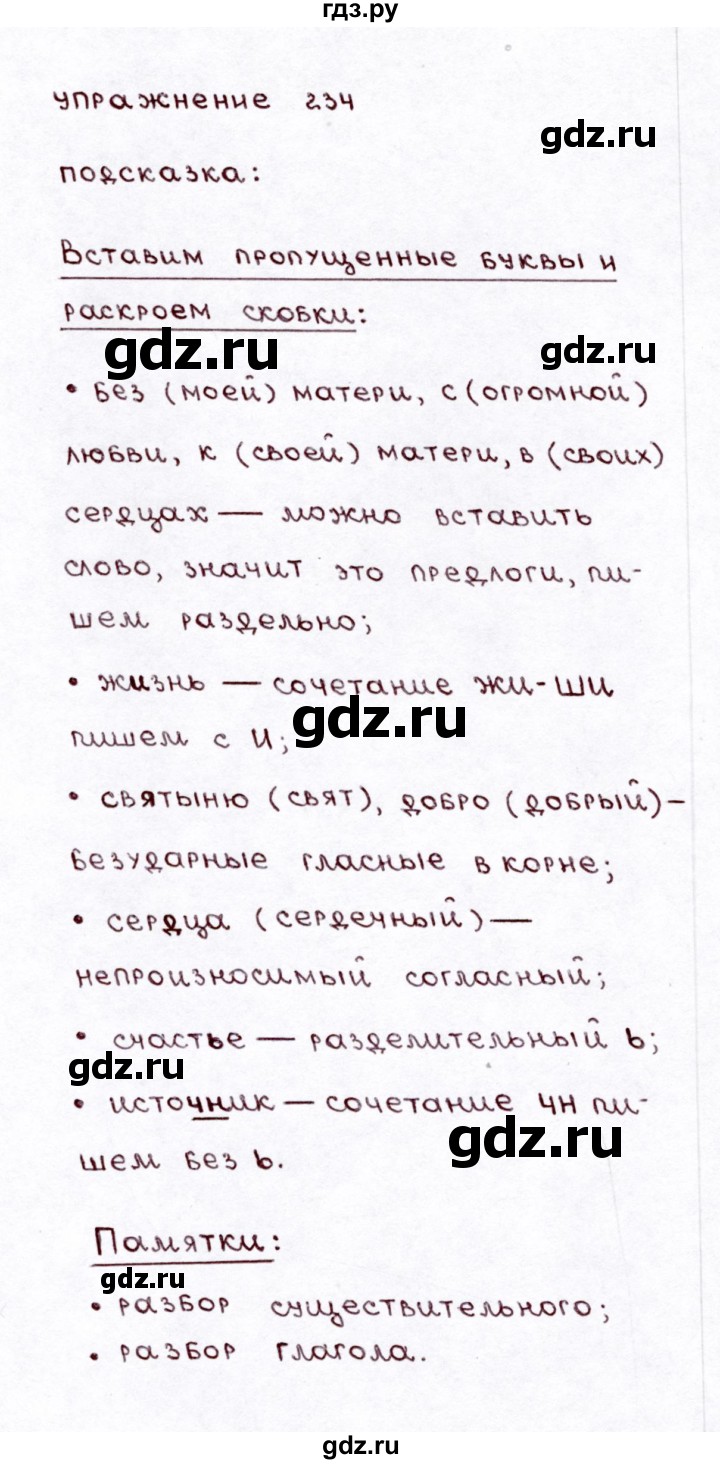 гдз.ру
упражнение 234
gdz.ru
подсказка:
Вставим пропущенные буквы и
раскроем скобки:
gdz.ru
gdz.ru
• без (моей) матери, с (огромной)
любви, к (своей) матери, в (своих)
сердцах — можно вставить
слово, значит это предлоги, пи-
шем раздельно;
• жизнь — сочетание жи-ши
gdz.ru
пишем с и;
• святыню (свят), добро (добрый) –
безударные гласные в корне;
• сердца (сердечный) —
непроизносимый согласный;
• счастье — разделительный ь;
gdz.ru
• источник — сочетание чн пи-
gdz.ru
шем без ь.
Памятки:
gdz.ru
• разбор существительного;
• разбор глагола.
gdz.ru